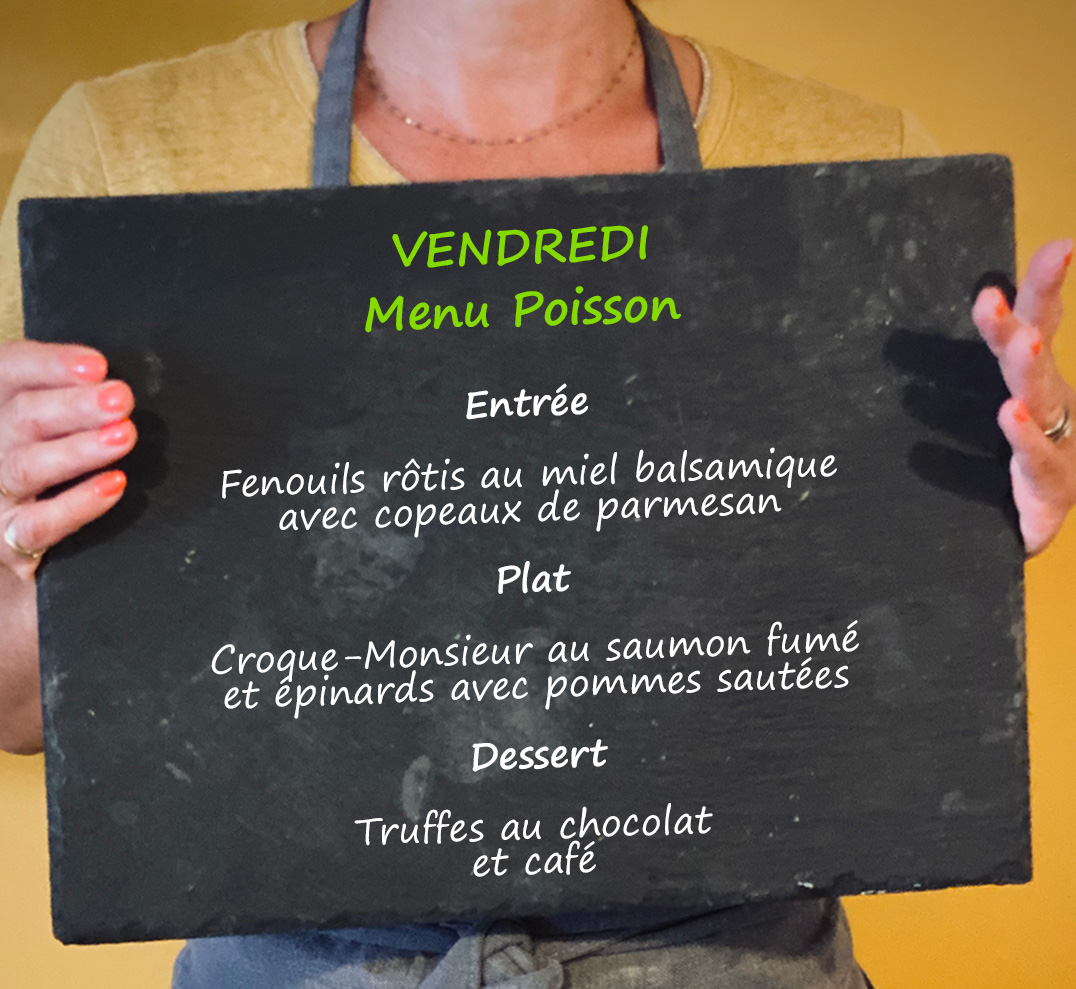 VENDREDI
Menu Poisson
Entrée
Fenouils rôtis au miel balsamique
avec copeaux de parmesan
Plat
Croque-Monsieur au saumon fumé
et épinards avec pommes sautées
Dessert
Truffes au chocolat
et café